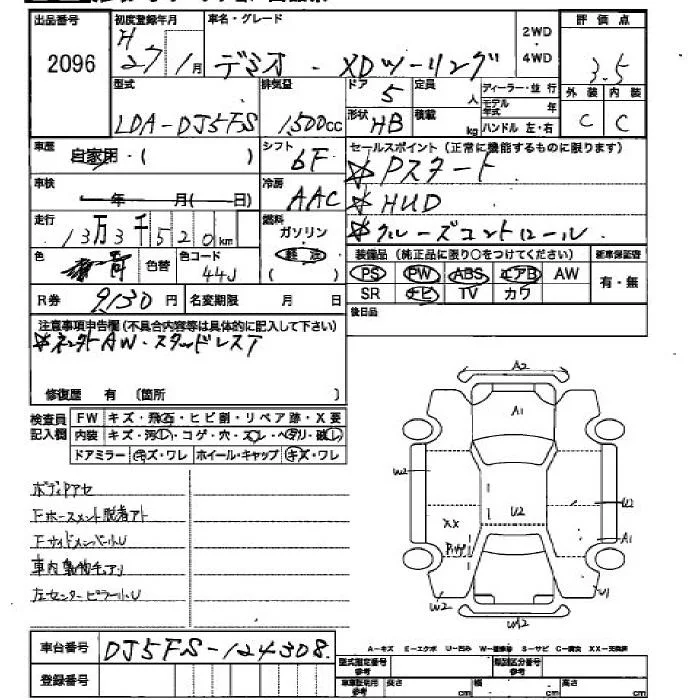 出品番号 初度登録年月 車名・グレード 2WD・4WD 評価点
2096 H27/1月 デミオ・XDツーリング 3.5
型式 排気量 ドア 5 定員 人 ディーラー・並行 外装 内装
LDA-DJ5FS 1,500cc 形状 HB 積載 kg モデル年式 年 ハンドル 左・右 C C
車歴 自家用・( ) シフト 6F セールスポイント(正常に機能するものに限ります)
☆ Pスタート
車検 年 月(日) 冷房 AAC ☆ HUD
走行 13万3千520km 燃料 ガソリン ☆ クルーズコントロール
軽油 装備品(純正品に限り○をつけてください) 新車保証書
色 青 色替 色コード 44J PS PW ABS エアB AW 有・無
R券 9130円 名変期限 月 日 SR ナビ TV カワ
後日品
注意事項申告欄(不具合内容等は具体的に記入して下さい)
AW・スタッドレスT
修復歴 有 〔箇所 〕
検査員記入欄 FW キズ・飛石・ヒビ割・リペア跡・X要
内装 キズ・汚レ・コゲ・穴・スレ・ヘタリ・破レ
ドアミラー キズ・ワレ ホイール・キャップ キズ・ワレ
A2
A1
W2 U2 W2
XX A1
W2 U1
W2
ボディPアセ
Fホースメント脱着アト
FサイドメンバーU
車内
左センターピラー小U
車台番号 DJ5FS-124308
A-キズ E-エクボ U-凹み W-補修跡 S-サビ C-腐食 XX-交換済
登録番号 型式指定番号 参考 類別区分番号 参考
車庫証明用 参考 長さ cm 幅 cm 高さ cm